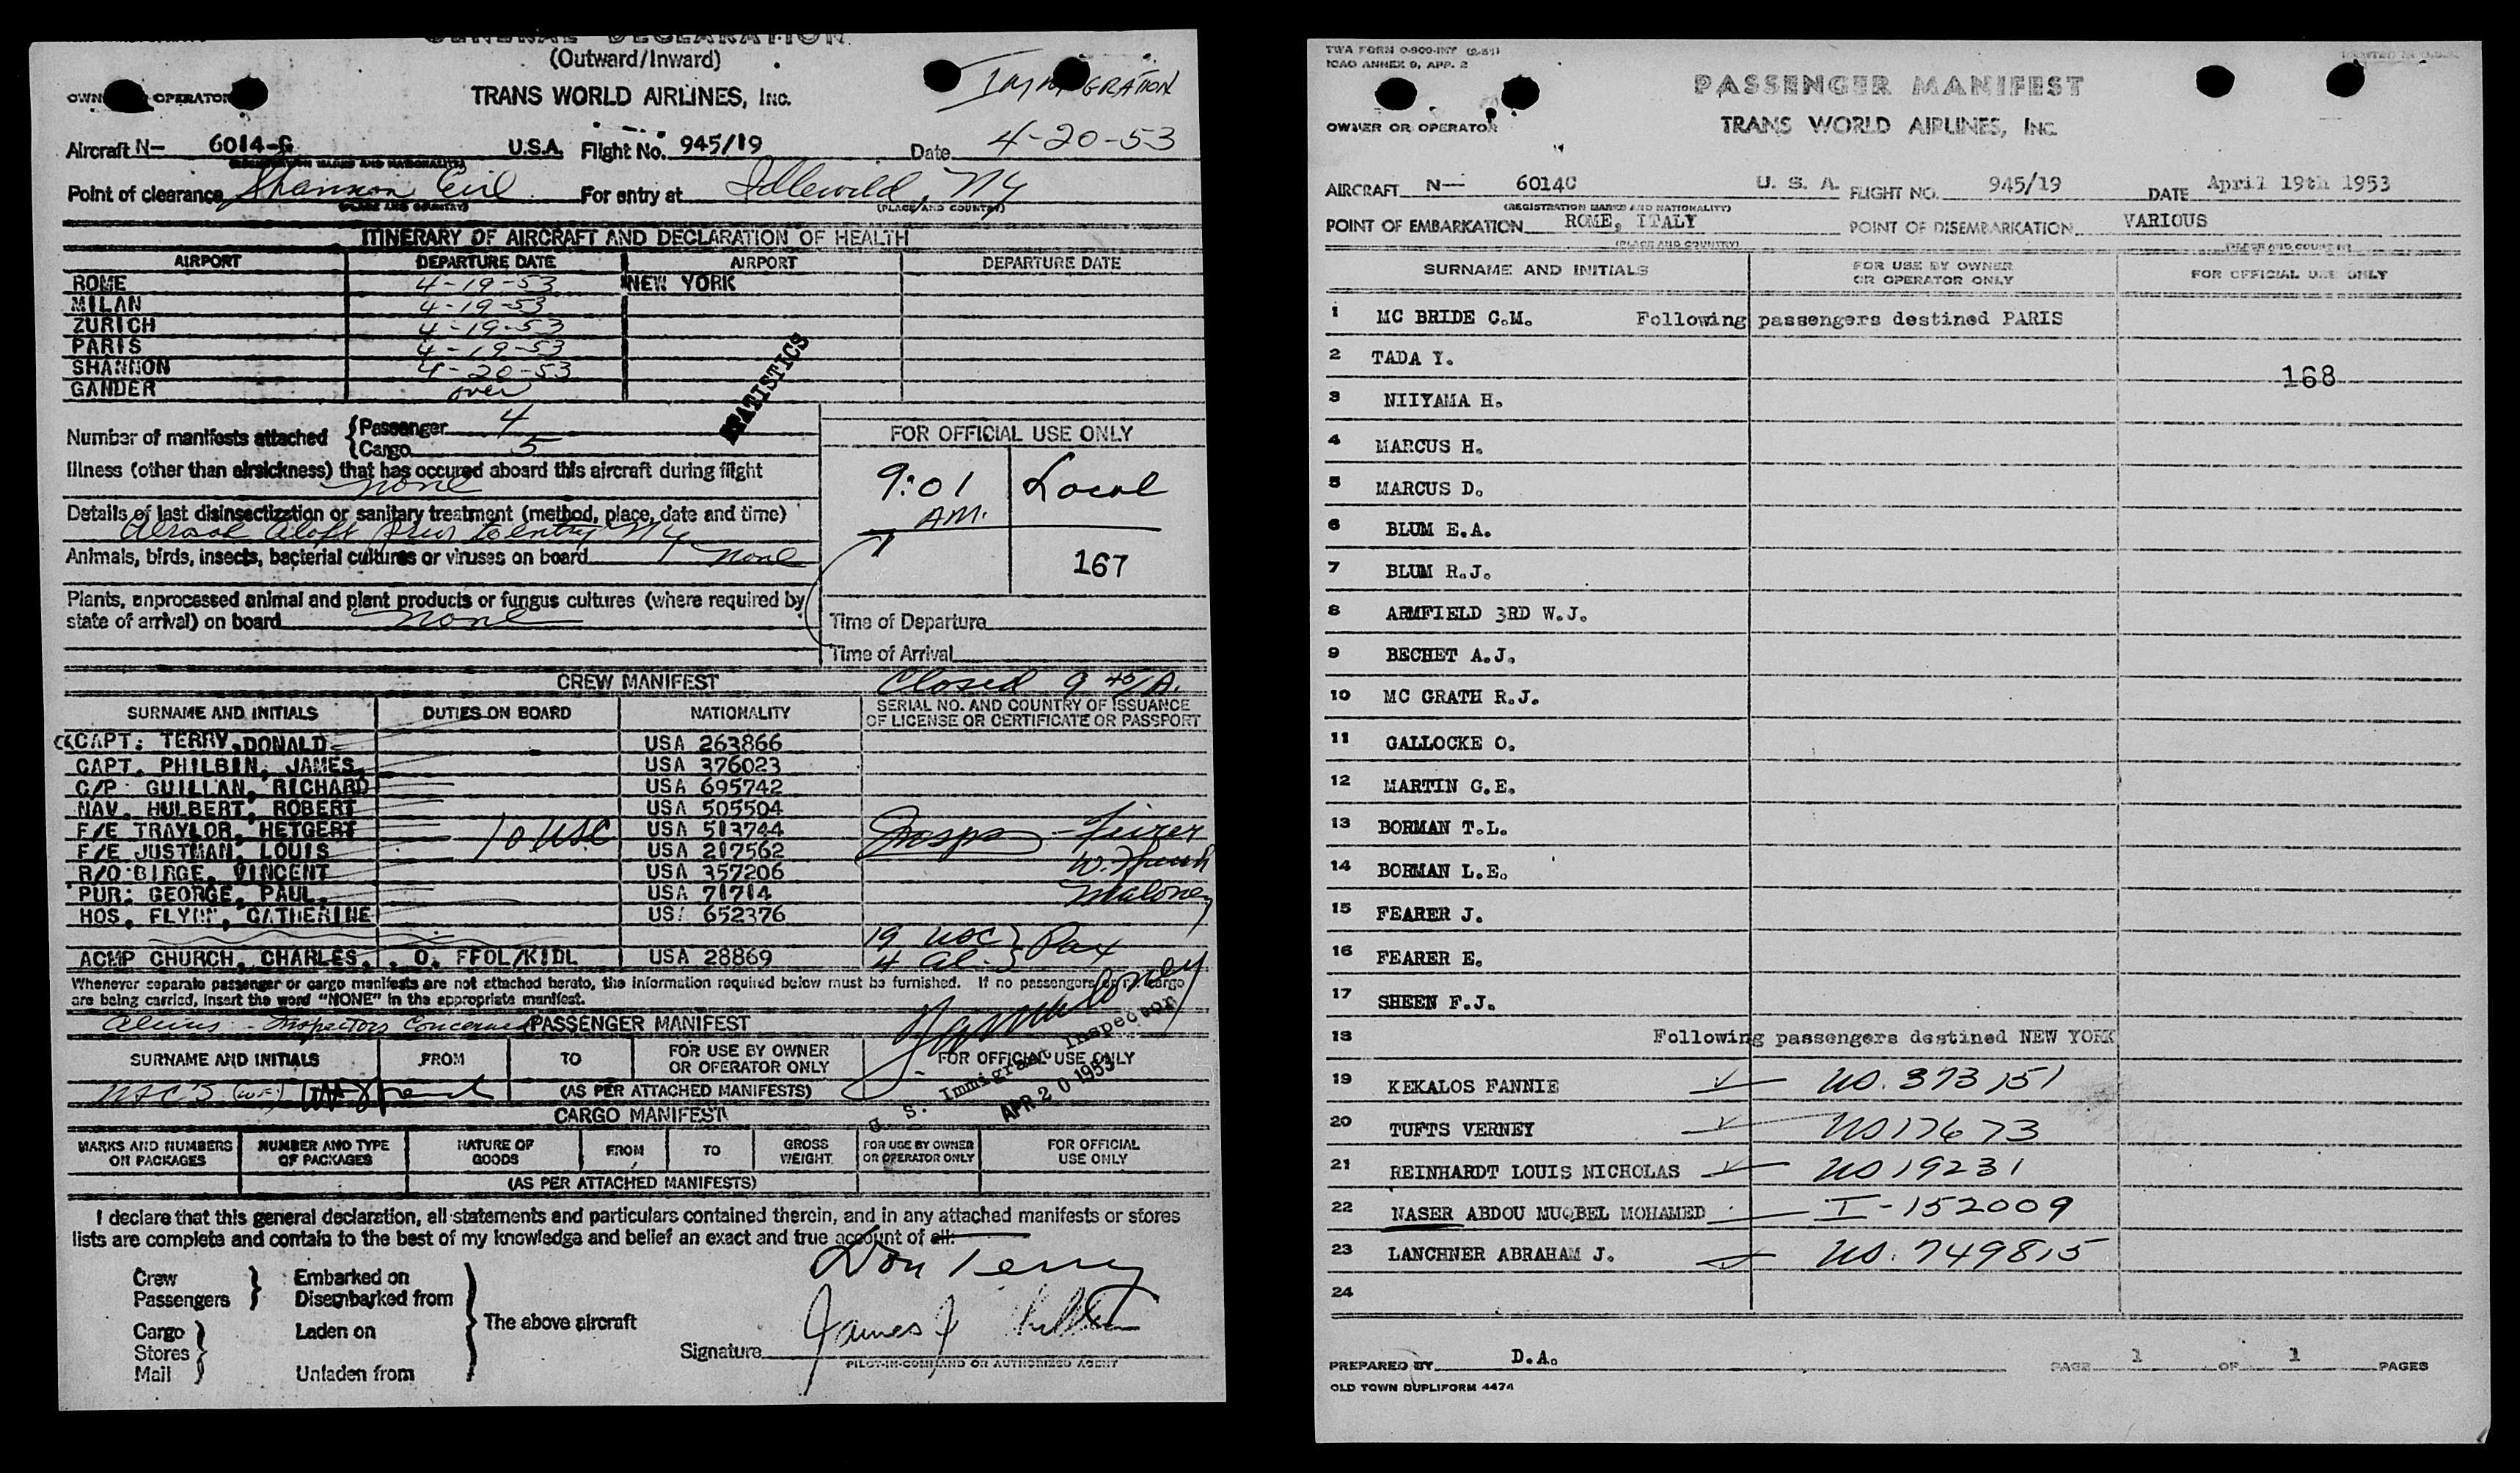 GENERAL DECLARATION
(Outward/Inward)
IMMIGRATION
OWNER OR OPERATOR TRANS WORLD AIRLINES, INC.
Aircraft N- 6014-C U.S.A. Flight No. 945/19 Date 4-20-53
(REGISTRATION MARKS AND NATIONALITY)
Point of clearance Shannon Eire For entry at Idlewild, NY
(PLACE AND COUNTRY) (PLACE AND COUNTRY)
ITINERARY OF AIRCRAFT AND DECLARATION OF HEALTH
AIRPORT DEPARTURE DATE AIRPORT DEPARTURE DATE
ROME 4-19-53 NEW YORK
MILAN 4-19-53
ZURICH 4-19-53
PARIS 4-19-53
SHANNON 4-20-53
GANDER over
STATISTICS
Number of manifests attached { Passenger 4
{ Cargo 5
Illness (other than airsickness) that has occured aboard this aircraft during flight
none
Details of last disinsectization or sanitary treatment (method, place, date and time)
Aerosol aloft prior to entry NY
Animals, birds, insects, bacterial cultures or viruses on board none
Plants, unprocessed animal and plant products or fungus cultures (where required by
state of arrival) on board none
FOR OFFICIAL USE ONLY
9:01 Local
AM.
167
Time of Departure
Time of Arrival
CREW MANIFEST Closed 9 45/A.
SURNAME AND INITIALS DUTIES ON BOARD NATIONALITY SERIAL NO. AND COUNTRY OF ISSUANCE
OF LICENSE OR CERTIFICATE OR PASSPORT
CAPT: TERRY, DONALD USA 263866
CAPT. PHILBIN, JAMES, USA 376023
C/P: GUILLAN, RICHARD USA 695742
NAV. HULBERT, ROBERT USA 505504
F/E TRAYLOR, HETGERT 10 USC USA 513744 Insps -
F/E JUSTMAN, LOUIS USA 217562
R/O: BIRGE, VINCENT USA 357206
PUR: GEORGE, PAUL, USA 71714 Maloney
HOS, FLYNN, CATHERINE USA 652376
19 USC } Pax
ACMP CHURCH, CHARLES, . O. FFOL/KIDL USA 28869 4 Al. }
Whenever separate passenger or cargo manifests are not attached hereto, the information required below must be furnished. If no passengers or no cargo
are being carried, insert the word "NONE" in the appropriate manifest.
Aliens - Inspectors Concerned PASSENGER MANIFEST
SURNAME AND INITIALS FROM TO FOR USE BY OWNER
OR OPERATOR ONLY FOR OFFICIAL USE ONLY
U. S. Immigrant Inspector
USC'S (AS PER ATTACHED MANIFESTS)
APR 20 1953
CARGO MANIFEST
MARKS AND NUMBERS
ON PACKAGES NUMBER AND TYPE
OF PACKAGES NATURE OF
GOODS FROM TO GROSS
WEIGHT FOR USE BY OWNER
OR OPERATOR ONLY FOR OFFICIAL
USE ONLY
(AS PER ATTACHED MANIFESTS)
I declare that this general declaration, all statements and particulars contained therein, and in any attached manifests or stores
lists are complete and contain to the best of my knowledge and belief an exact and true account of all:
Don Terry
Crew } Embarked on
Passengers } Disembarked from
Cargo } Laden on
Stores }
Mail } Unladen from
The above aircraft
Signature James J Philbin
PILOT-IN-COMMAND OR AUTHORIZED AGENT
TWA FORM O-900-INT (2-51)
ICAO ANNEX 9, APP. 2
PRINTED IN U.S.A.
PASSENGER MANIFEST
OWNER OR OPERATOR TRANS WORLD AIRLINES, INC.
AIRCRAFT N- 6014C U. S. A. FLIGHT NO. 945/19 DATE April 19th 1953
(REGISTRATION MARKS AND NATIONALITY)
POINT OF EMBARKATION ROME, ITALY POINT OF DISEMBARKATION VARIOUS
(PLACE AND COUNTRY) (PLACE AND COUNTRY)
SURNAME AND INITIALS FOR USE BY OWNER
OR OPERATOR ONLY FOR OFFICIAL USE ONLY
1 MC BRIDE C.M. Following passengers destined PARIS
2 TADA Y.
168
3 NIIYAMA H.
4 MARCUS H.
5 MARCUS D.
6 BLUM E.A.
7 BLUM R.J.
8 ARMFIELD 3RD W.J.
9 BECHET A.J.
10 MC GRATH R.J.
11 GALLOCKE O.
12 MARTIN G.E.
13 BORMAN T.L.
14 BORMAN L.E.
15 FEARER J.
16 FEARER E.
17 SHEEN F.J.
18 Following passengers destined NEW YORK
19 KEKALOS FANNIE US. 373151
20 TUFTS VERNEY US 17673
21 REINHARDT LOUIS NICHOLAS US 19231
22 NASER ABDOU MUQBEL MOHAMED I-152009
23 LANCHNER ABRAHAM J. US. 749815
24
PREPARED BY D.A. PAGE 1 OF 1 PAGES
OLD TOWN DUPLIFORM 4474